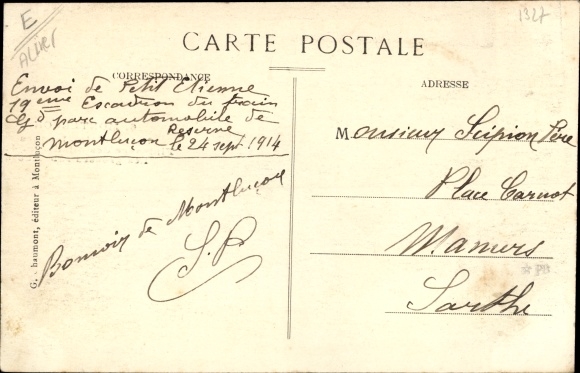 E
ALLIER
1327
CARTE POSTALE
CORRESPONDANCE
ADRESSE
Envoi de Petit Etienne
19 eme Escadron du train
Gd parc automobile de
Reserve
Montluçon le 24 sept 1914
Bonsoir de Montluçon
S. P.
Monsieur Scipion Père
Place Carnot
Mamers
Sarthe
G. haumont, éditeur à Montluçon